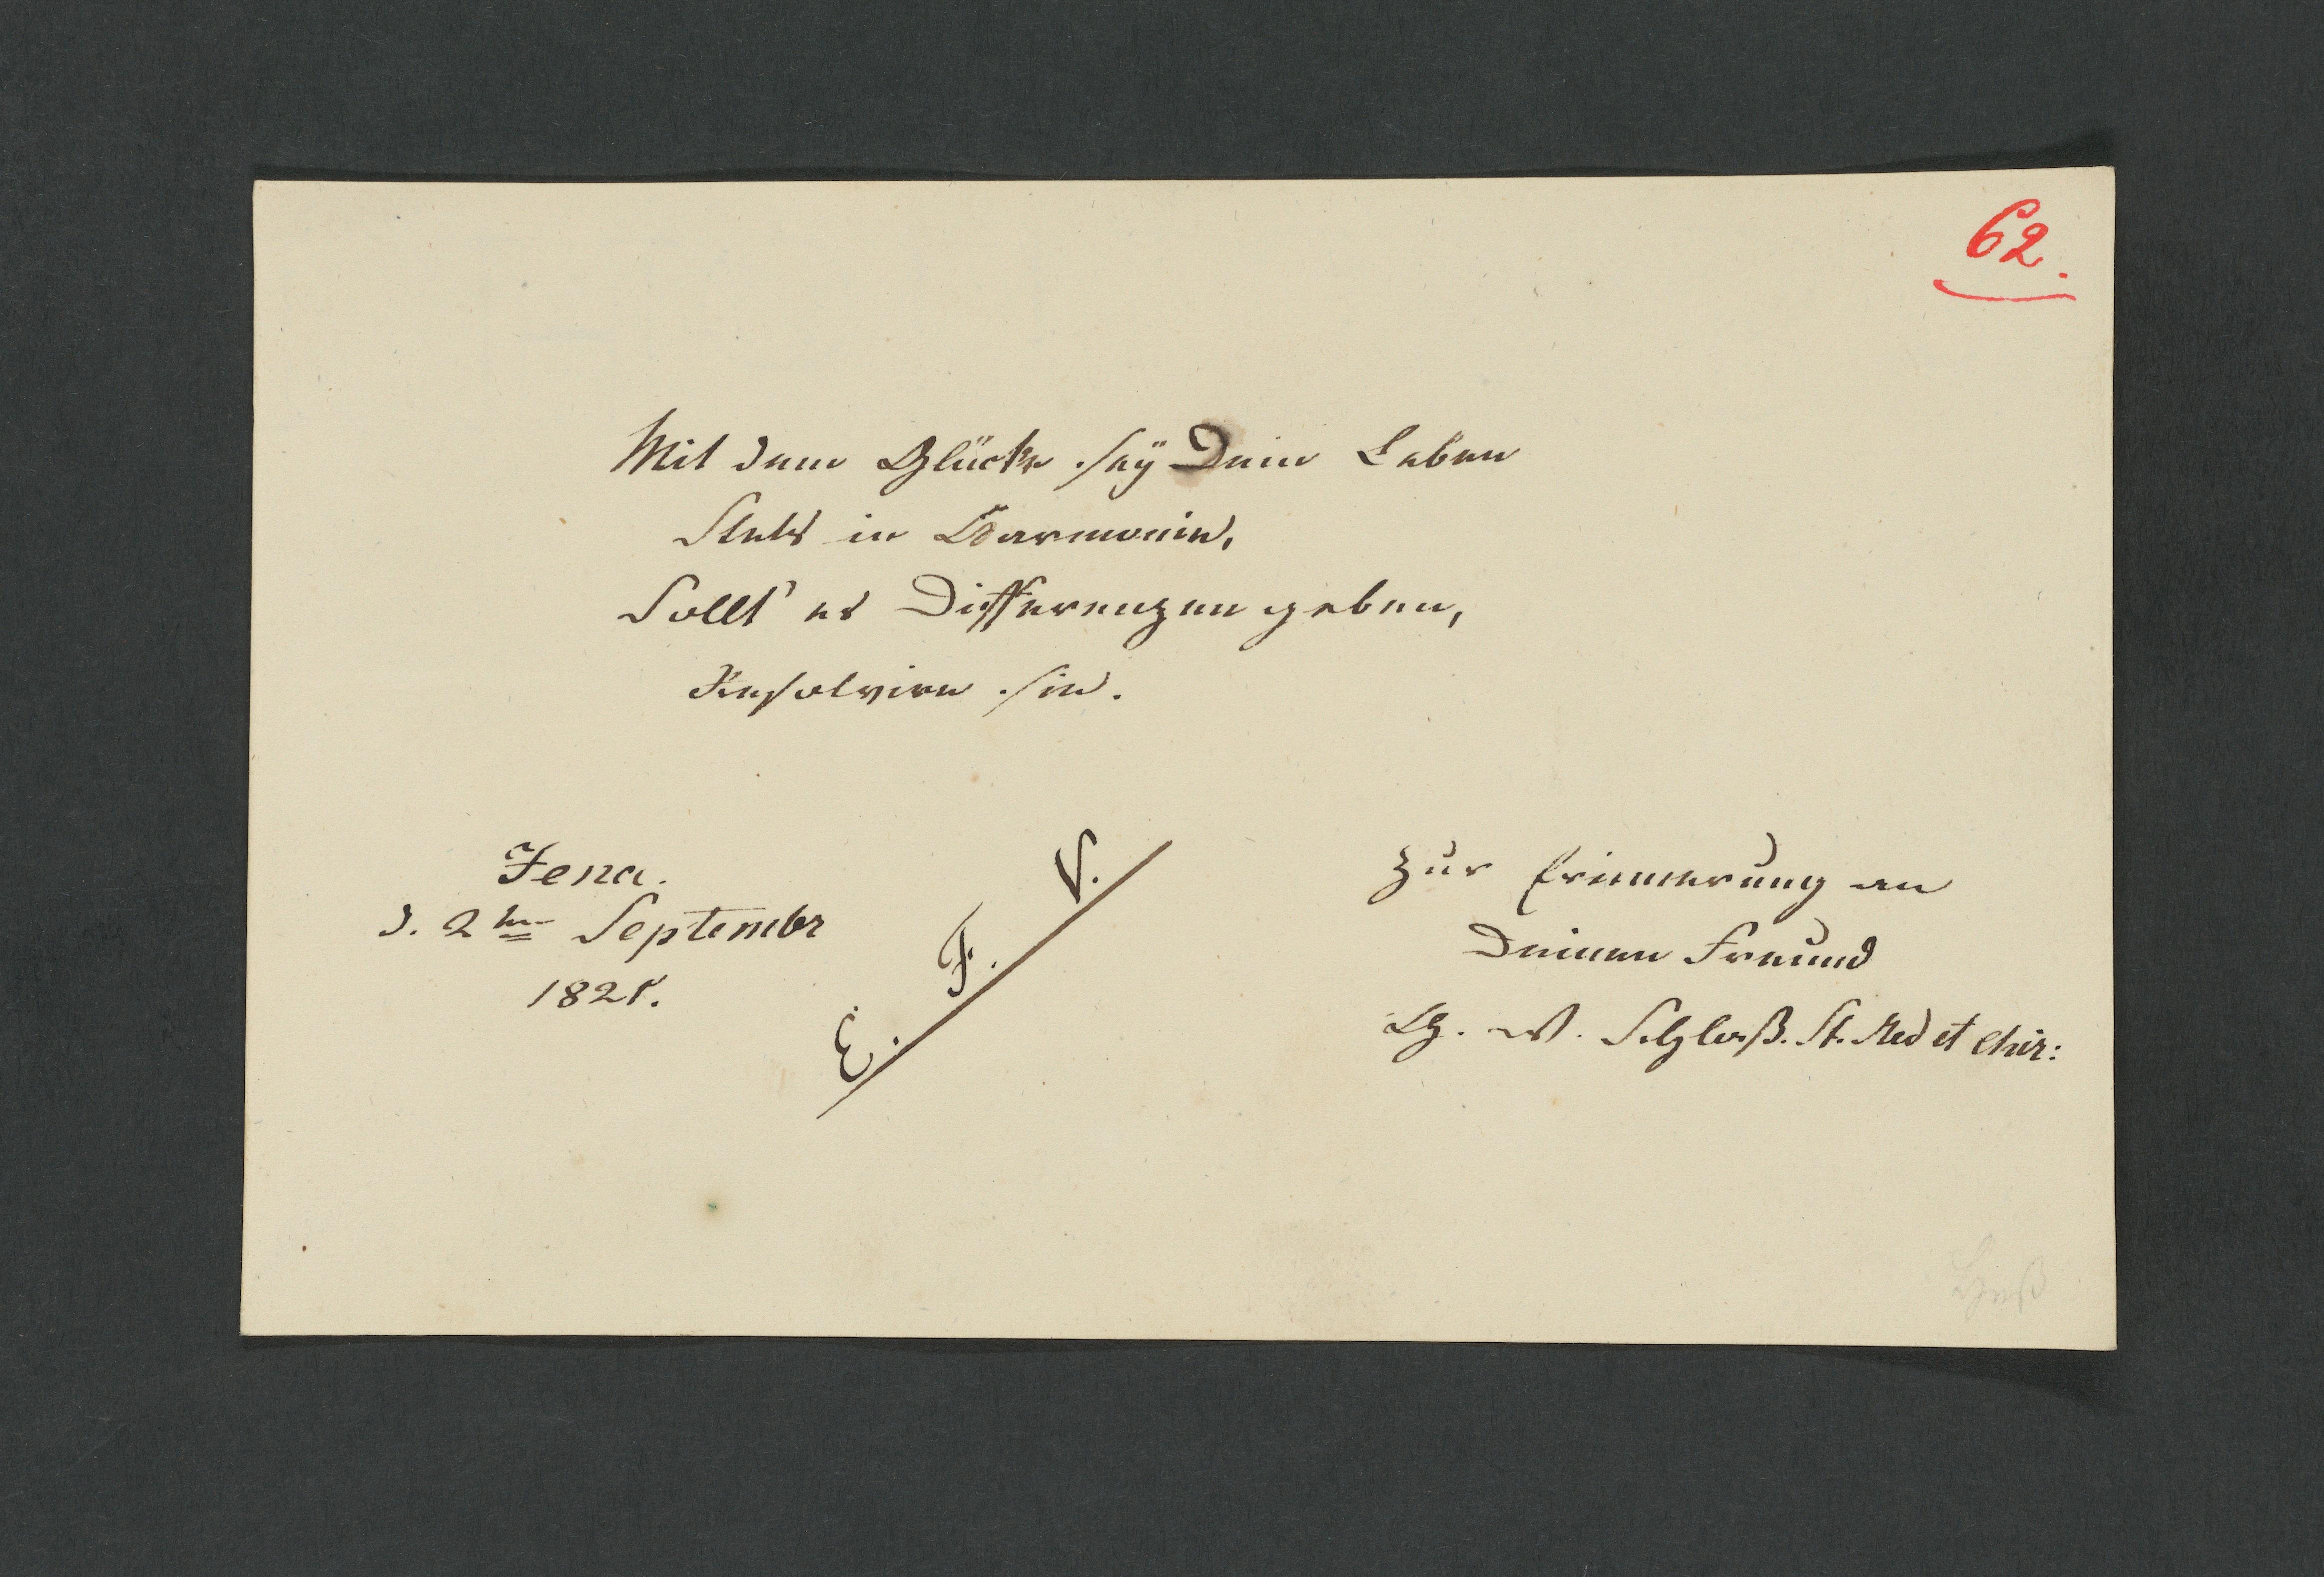 62.
Mit dem Glücke sey Dein Leben
Stets in Harmonie,
Sollt' es Differenzen geben,
Resolvire sie.
Jena.
d. 2ten Septembr
1825.
E. F. V.
Zur Erinnerung an
Deinen Freund
W. St. Med et Chir: